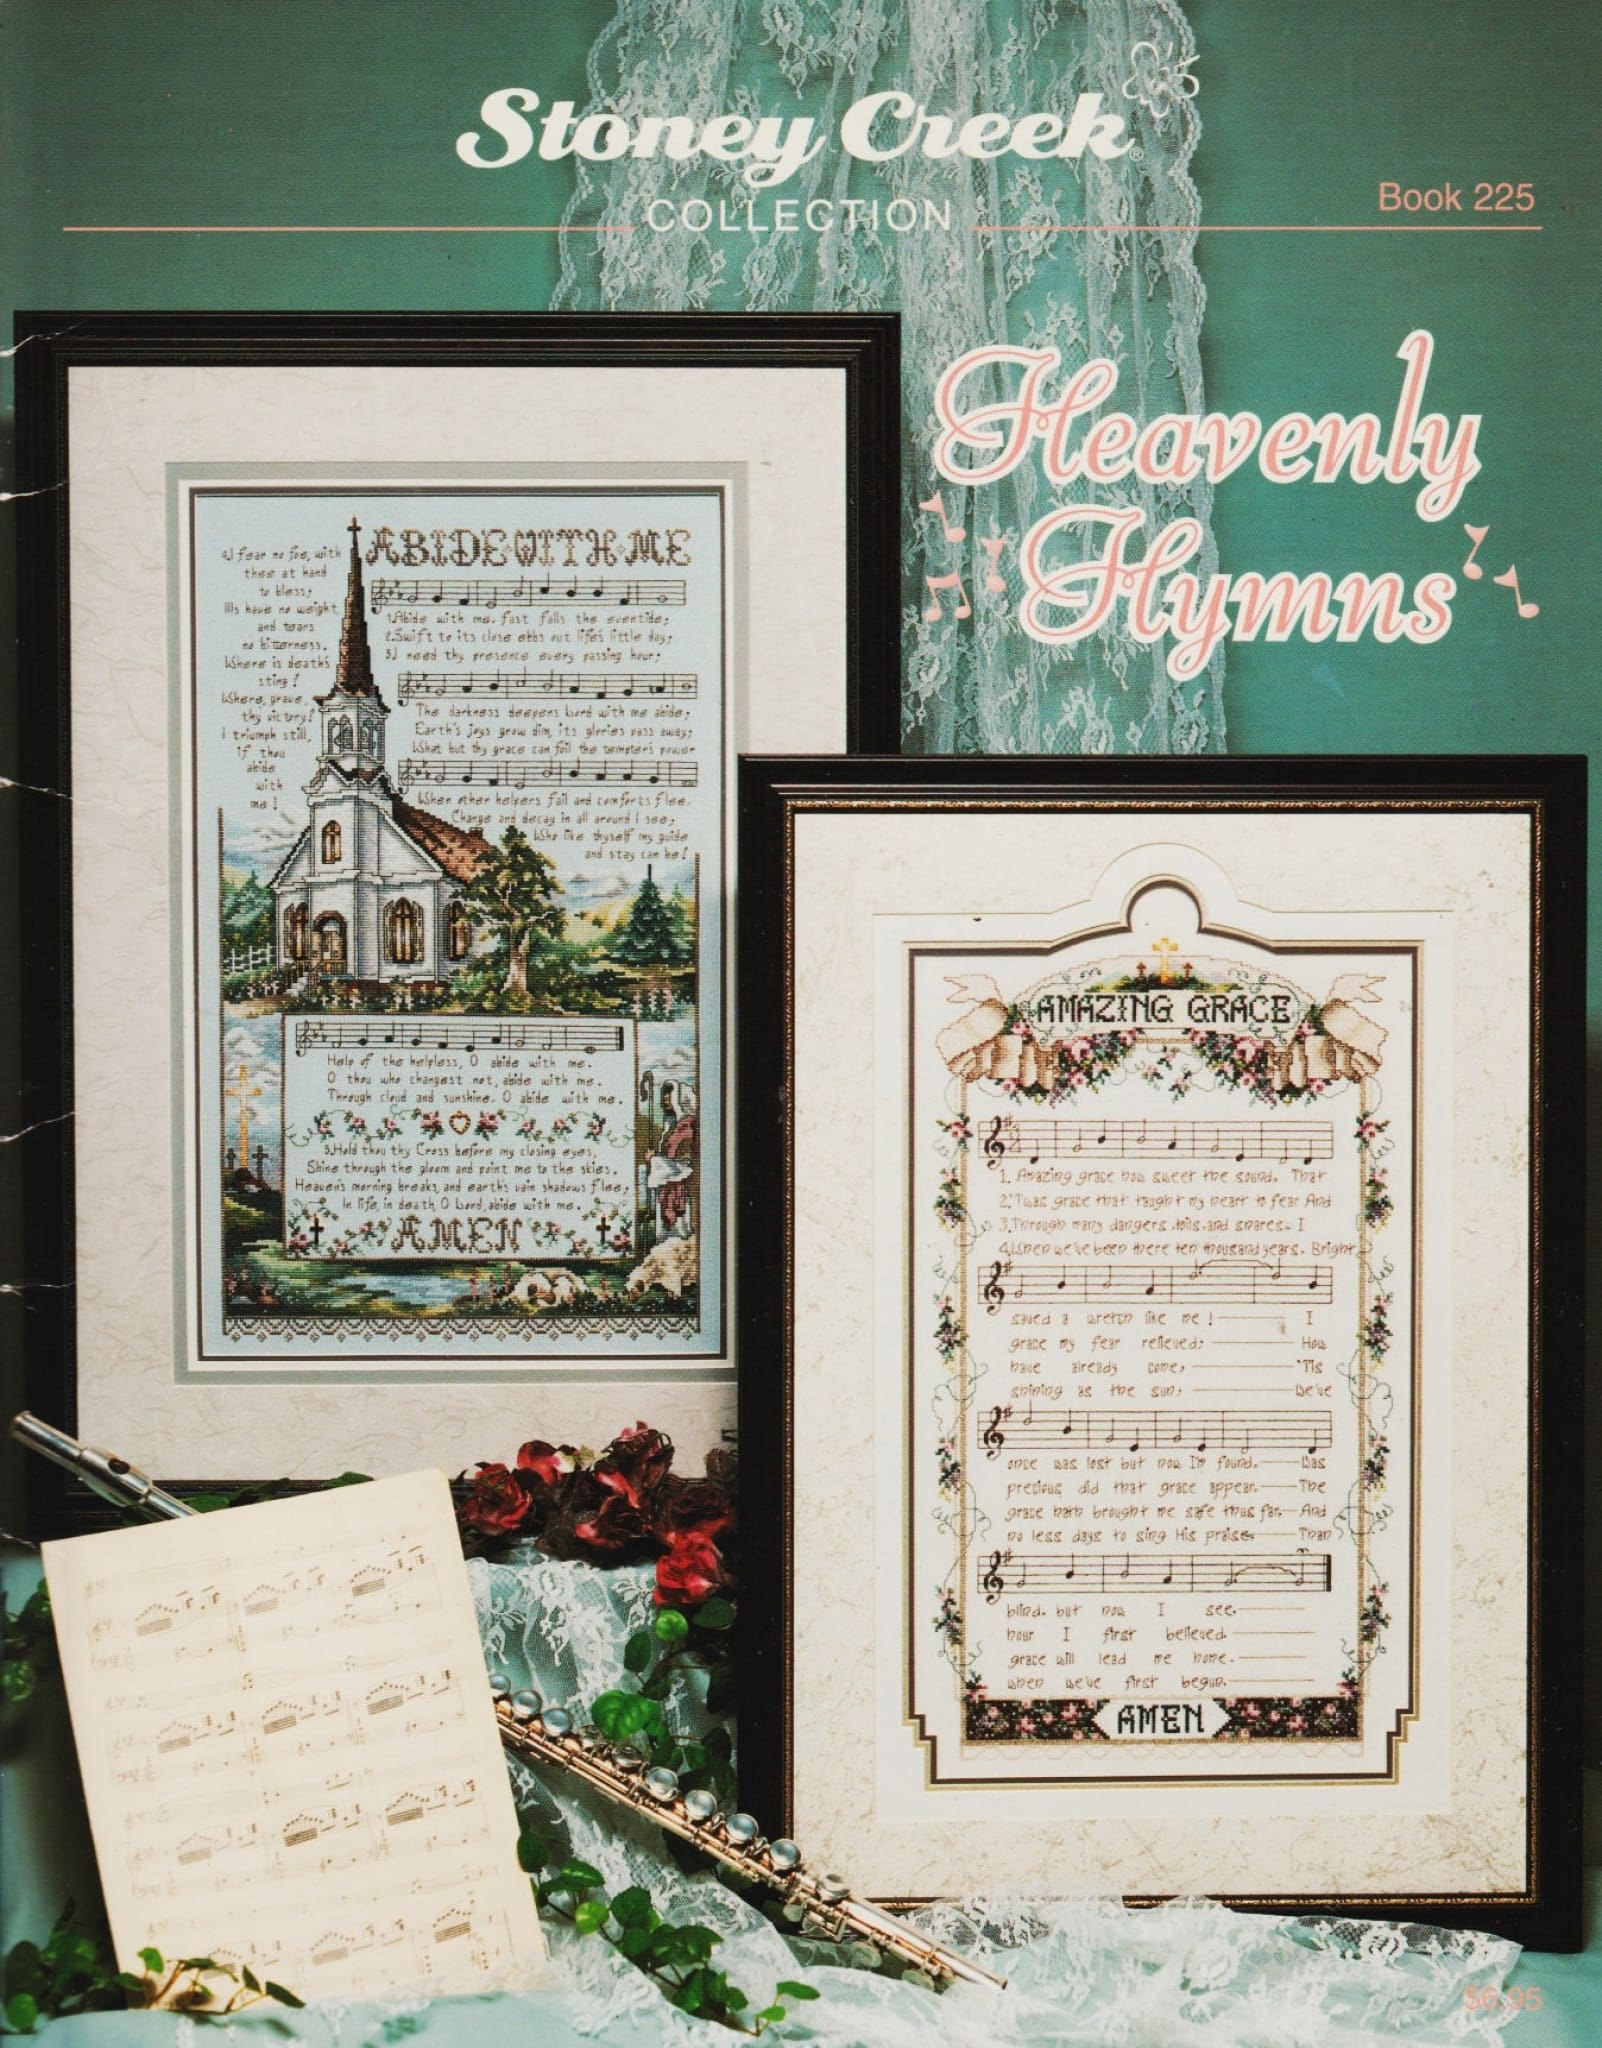 Stoney Creek®
COLLECTION
Book 225
Heavenly
Hymns
ABIDE WITH ME
4.I fear no foe, with
thee at hand
to bless;
Ills have no weight,
and tears
no bitterness.
Where is death's
sting!
Where, grave,
thy victory!
I triumph still,
if thou
abide
with
me!
1.Abide with me. fast falls the eventide;
2.Swift to its close ebbs out life's little day;
3.I need thy presence every passing hour;
The darkness deepens Lord with me abide;
Earth's joys grow dim, its glories pass away;
What but thy grace can foil the tempter's power
When other helpers fail and comforts flee.
Change and decay in all around I see;
Who like thyself my guide
and stay can be!
Help of the helpless, O abide with me.
O thou who changest not, abide with me.
Through cloud and sunshine. O abide with me.
5.Hold thou thy Cross before my closing eyes,
Shine through the gloom and point me to the skies.
Heaven's morning breaks, and earth's vain shadows flee;
In life, in death, O Lord, abide with me.
AMEN
AMAZING GRACE
1. Amazing grace how sweet the sound. That
2.'Twas grace that taught my heart to fear And
3.Through many dangers .toils.and snares.- I
4.When we've been there ten thousand years. Bright
saved a wretch like me! I
grace my fear relieved; How
have already come; 'Tis
shining as the sun; We've
once was lost but now I'm found. Was
precious did that grace appear. The
grace hath brought me safe thus far. And
no less days to sing His praise. Than
blind. but now I see.
hour I first believed.
grace will lead me home.
when we've first begun.
AMEN
$6.95